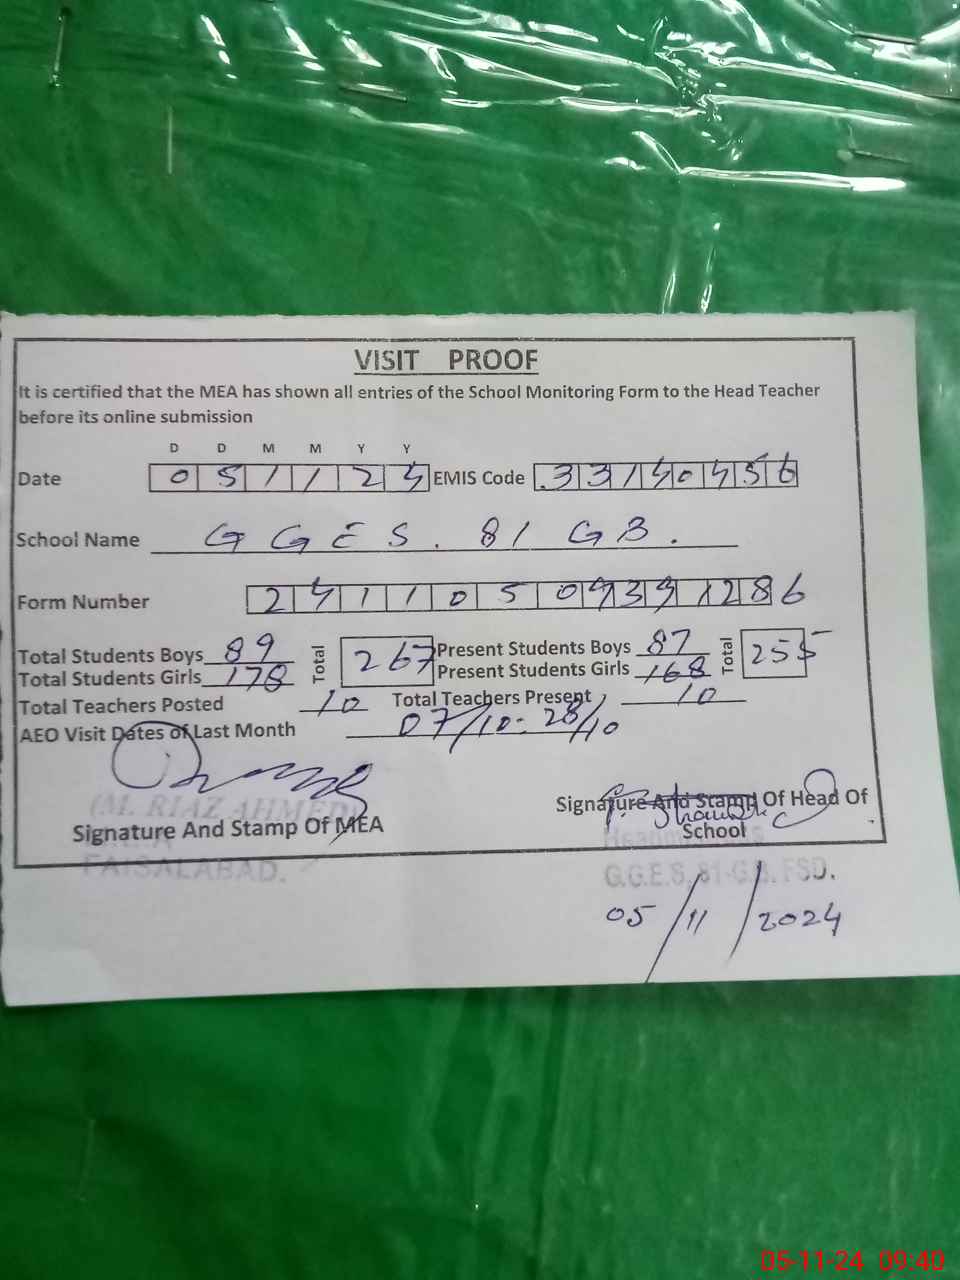 VISIT PROOF
It is certified that the MEA has shown all entries of the School Monitoring Form to the Head Teacher
before its online submission
D D M M Y Y
Date 0 5 1 1 2 4 EMIS Code 3 3 1 4 0 4 5 6
School Name G G E S . 81 G B .
Form Number 2 4 1 1 0 5 0 9 3 9 1 2 8 6
Total Students Boys 89 Total 267 Present Students Boys 87 Total 255
Total Students Girls 178 Present Students Girls 168
Total Teachers Posted 10 Total Teachers Present 10
AEO Visit Dates of Last Month 07/10. 28/10
(M. RIAZ AHMED)
Signature And Stamp Of MEA
FAISALABAD.
Signature And Stamp Of Head Of
School
G.G.E.S, 81-G.B. FSD.
05/11/2024
05-11-24 09:40